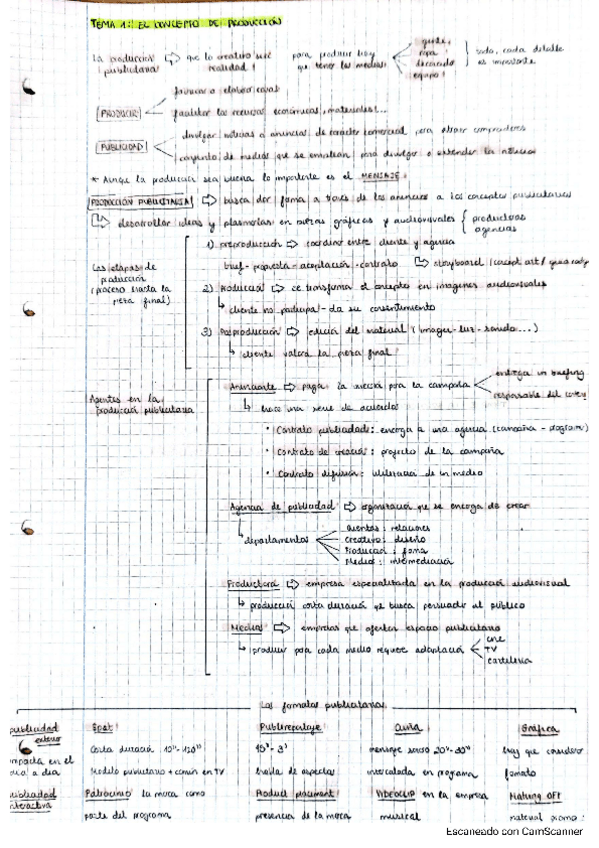 TEMA 1: EL CONCEPTO DE PRODUCCIÓN
La producción publicitaria ⇨ que lo creativo sea realidad! para producir hay que tener los medios guión! ropa! decorado equipo! todo, cada detalle es importante
PRODUCIR favorecer o elaborar cosas
facilitar los recursos económicos, materiales...
PUBLICIDAD divulgar noticias o anuncios de carácter comercial para atraer compradores
conjunto de medios que se emplean para divulgar o extender las noticias
* Aunque la producción sea buena lo importante es el MENSAJE.
PRODUCCIÓN PUBLICITARIA ⇨ busca dar forma a través de los anuncios a los conceptos publicitarios
desarrollar ideas y plasmarlas en piezas gráficas y audiovisuales { productoras agencias
Las etapas de producción (proceso hasta la pieza final)
1) preproducción ⇨ coordinar entre cliente y agencia
brief - propuesta - aceptación - contrato storyboard (concept art /
2) Producción ⇨ se transforma el concepto en imágenes audiovisuales
cliente no participa - da su consentimiento
3) Posproducción ⇨ edición del material (imagen - luz - sonido...)
cliente valora la pieza final
Agentes en la producción publicitaria
Anunciante ⇨ paga la para la campaña entrega un briefing
responsable del
hace una serie de acuerdos
• Contrato publicidad: encarga a una agencia (campaña - programa)
• Contrato de creación: proyecto de la campaña
• Contrato difusión: utilización de un medio
Agencia de publicidad ⇨ organización que se encarga de crear
departamentos
Cuentas: relaciones
Creativo: diseño
Producción: forma
Medios: intermediación
Productora ⇨ empresa especializada en la producción audiovisual
producción corta duración que busca persuadir al público
Medios ⇨ empresas que ofertan espacio publicitario
producir para cada medio requiere adaptación cine
TV
cartelería
Los formatos publicitarios
publicidad exterior
impacta en el día a día
publicidad interactiva
Spot!
Corta duración 10"-120"
Modelo publicitario + común en TV
Patrocinio la marca como
parte del programa
Publirreportaje!
15" - 3'
habla de aspectos
Product placement!
presencia de la marca
Cuña!
mensaje sonoro 20"-30"
intercalada en programa
VIDEOCLIP en la empresa
musical
Gráfica
hay que considerar
formato
material promo:
Escaneado con CamScanner